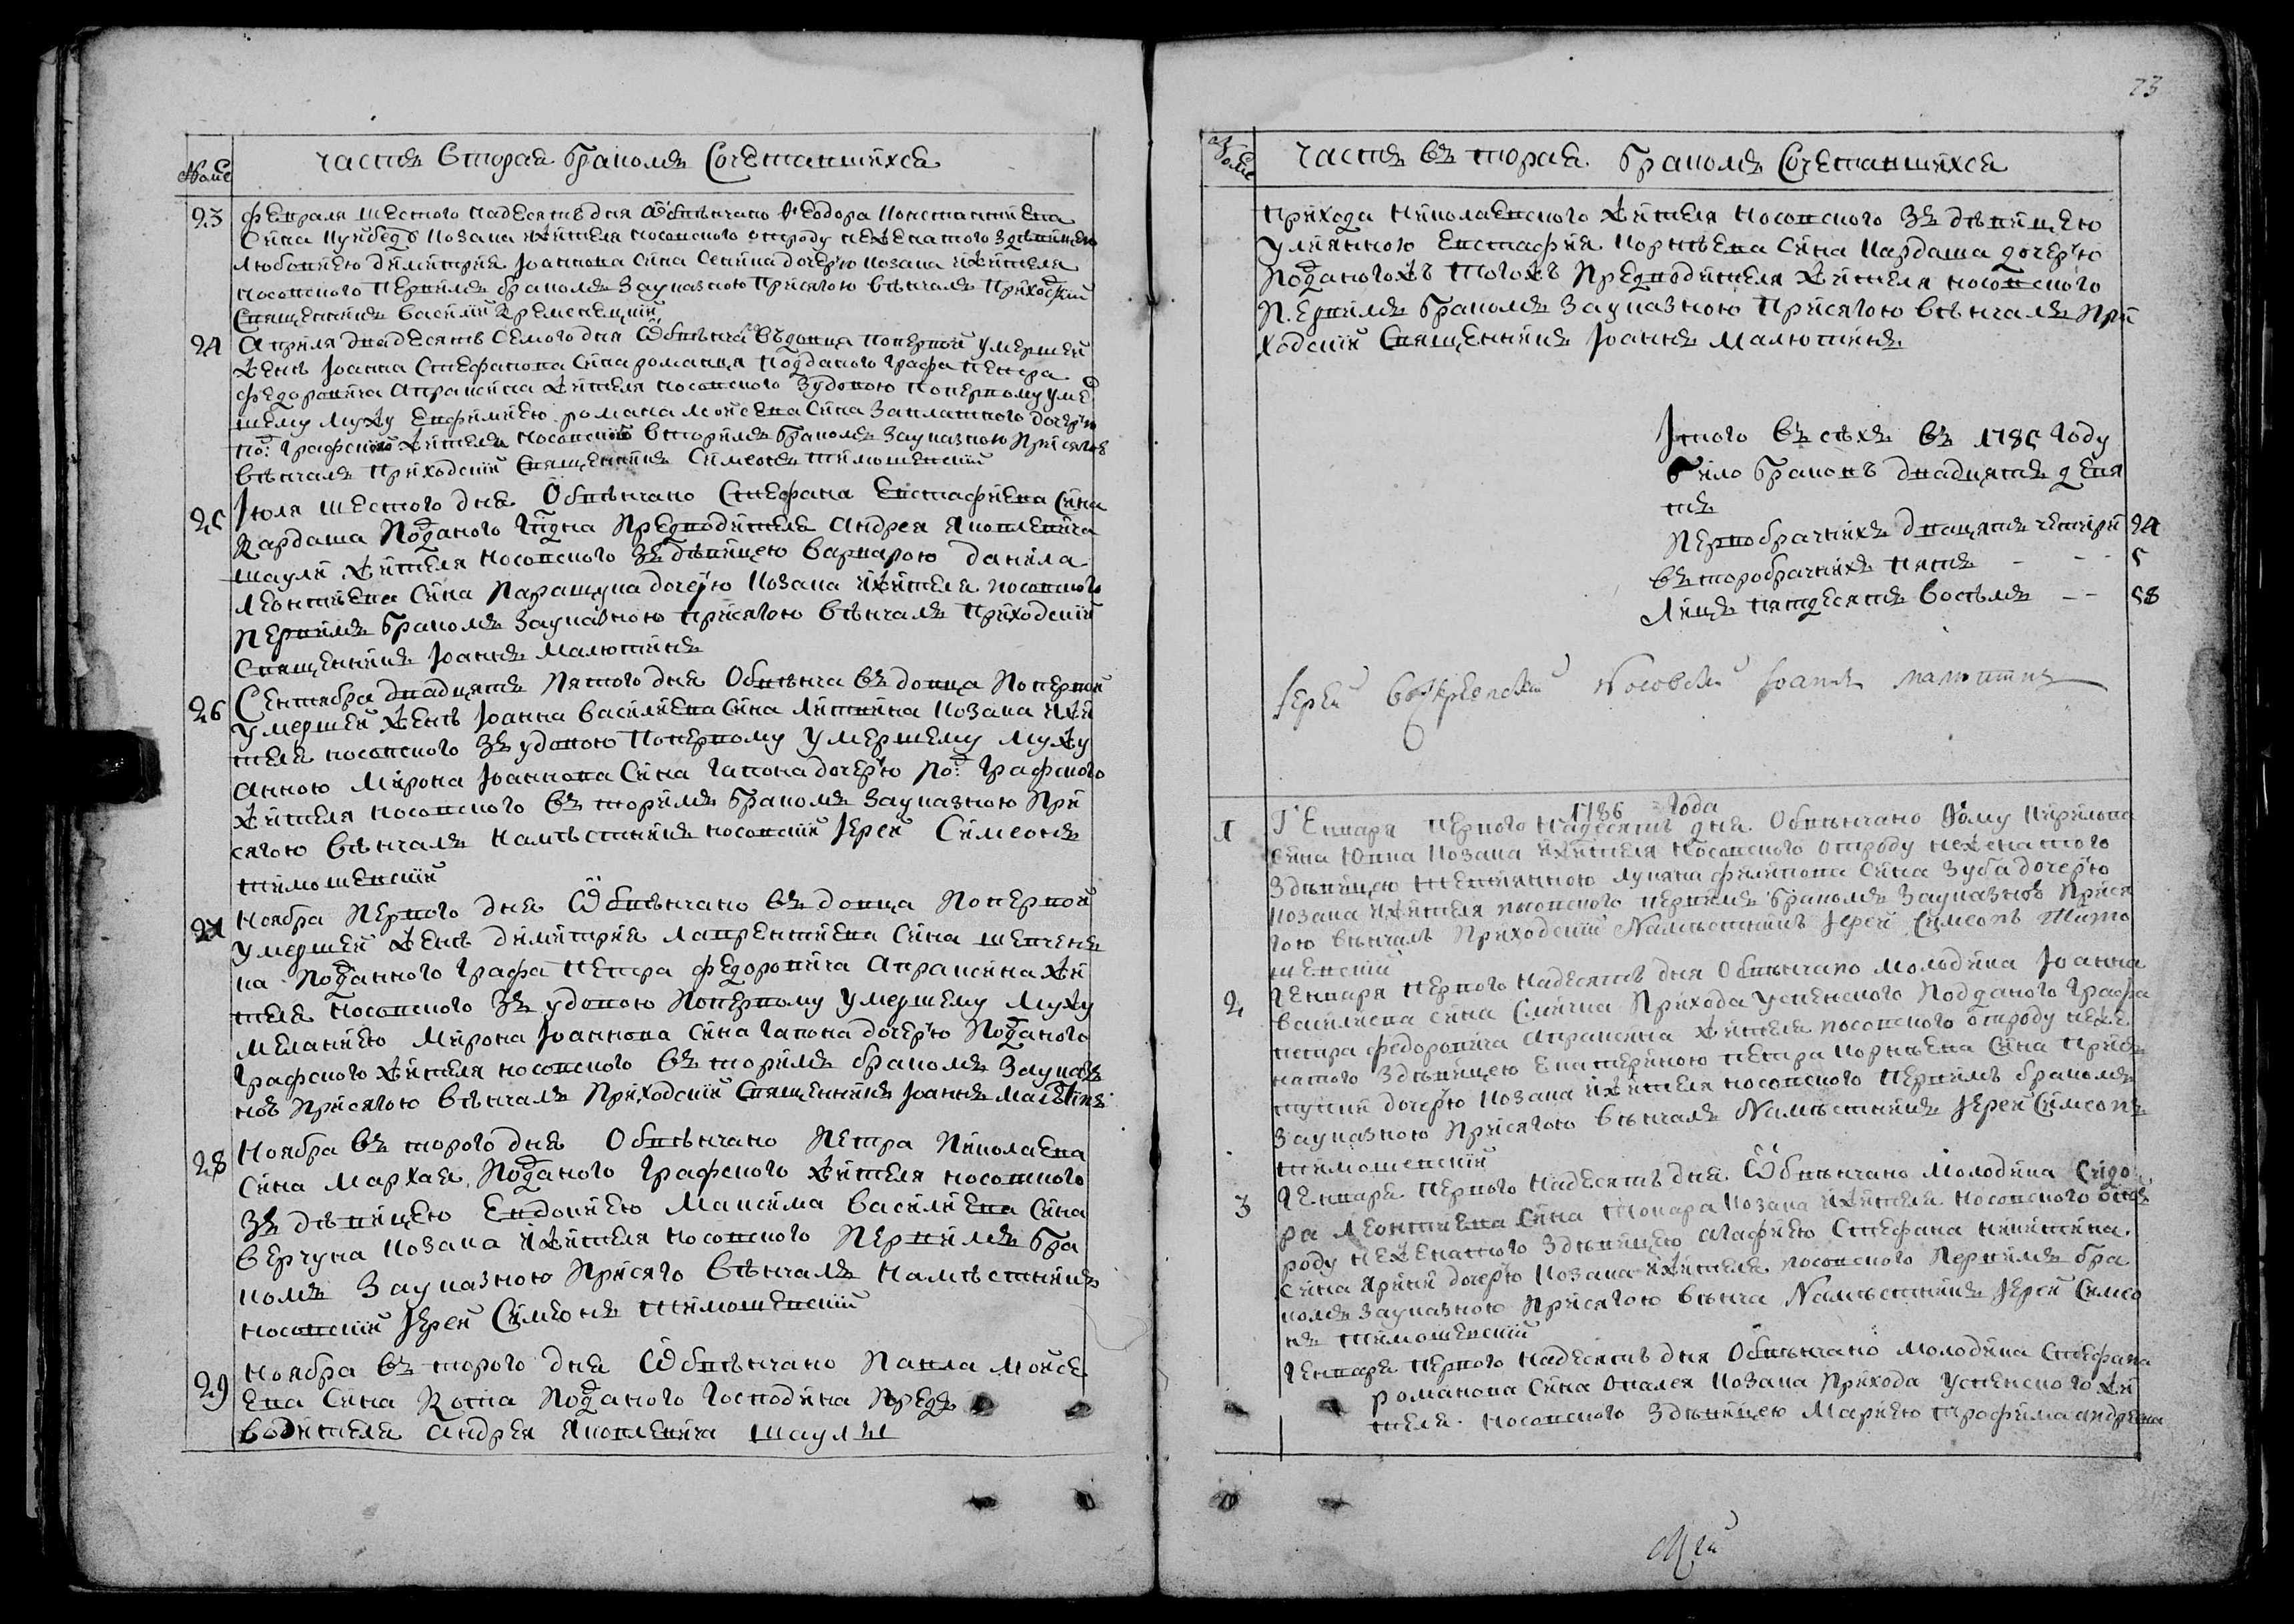 Часть вторая бракомъ сочетавшихся
№
23 Февраля шестого надесять дня обвѣнчано Феодора Константиева
сина козака и жителя носовского отроду неженатого здѣвицею
Любовиею Димитрия Иоаннова сина Сенина дочерю козака и жителя
носовского первимъ бракомъ зауказною присягою вѣнчалъ приходскій
священникъ Василий Кременецкий
24 Априля двадесять семого дня обвѣнча въдовца поперой умершей
женѣ Иоанна Стефанова сина романця подданого графа Петра
Федоровича Апраксина жителя носовского зудовою поперому уме
шему мужу Евфимиею романа мойсеева сина Заплатного дочерю
под: графского жителя носовского вторимъ бракомъ зауказною присягою
вѣнчалъ приходский священникъ Симеонъ Тимошевский
25 Июля шестого дня обвѣнчано Стефана Евстафиева сина
Кардаша подданого гпдна предводителя Андрея Яковлевича
шаули жителя носовского зъ дѣвицею варварою данила
Леонтиева сина Паращука дочерю козака и жителя носовского
первимъ бракомъ зауказною присягою вѣнчалъ приходский
священникъ Иоаннъ Малютинъ
26 Сентября двадцять пятого дня обвѣнча въдовца поперой
умершей женѣ Иоанна василиева сина Литвина козака и жи
теля носовского зъ удовою поперому умершему мужу
Анною Мирона Иоаннова сина гапона дочерю под: графского
жителя носовского въторимъ бракомъ зауказною при
сягою вѣнчалъ намѣстникъ носовский Иерей Симеонъ
Тимошевский
27 Ноября первого дня обвѣнчано въдовца поперой
умершей женѣ Димитрия Лаврентиева сина шевченъ
ка подданного графа Петра Федоровича Апраксина жи
теля носовского зъ удовою поперому умершему мужу
Меланиею Мирона Иоаннова сина гапона дочерю подданого
графского жителя носовского въторимъ бракомъ зауказ
ною присягою вѣнчалъ приходский священникъ Иоаннъ Малютинъ
28 Ноября въторого дня обвѣнчано Петра Николаева
сина Мархая подданого графского жителя носовского
зъ дѣвицею Евдокиею Максима василиева сина
верчука козака и жителя носовского первимъ бра
комъ зауказною присяго вѣнчалъ намѣстникъ
носовский Иерей Симеонъ Тимошевский
29 Ноября въторого дня обвѣнчано Павла Мойсе
ева сина Кота подданого господина предъ
водителя Андрея Яковлевича шаули
73
№
Часть въторая бракомъ сочетавшихся
прихода николаевского жителя носовского зъ дѣвицею
улияною Евстафия корнѣева сина кардаша дочерю
подданогожъ тогожъ предводителя жителя носовского
первимъ бракомъ зауказною присягою вѣнчалъ при
ходский священникъ Иоаннъ Малютинъ
Итого всѣхъ въ 1785 году
било браковъ двадцять девя
ть
первобрачнихъ двацять четири 24
въторобрачнихъ пять - - 5
Лицъ пятдесять восѣмъ - - 58
Иерей воскресенский Носовский Иоаннъ малютинъ
1786 года
1 Генваря первого надесять дня обвѣнчано Фому Кирилова
сина Ювка козака и жителя носовского отроду неженатого
здѣвицею Тетиянною лукяна филипова сина Зуба дочерю
козака и жителя носовского первимъ бракомъ зауказною прися
гою вѣнчалъ приходский Намѣстникъ Иерей Симеонъ Тимо
шевский
2 Генваря первого надесять дня обвѣнчано молодика Иоанна
василиева сина Прихода успенского подданого графа
петра федоровича апраксина жителя носовского отроду неже
натого здѣвицею Екатериною петра корнѣева сина
дочерю козака и жителя носовского первимъ бракомъ
зауказною присягою вѣнчалъ Намѣстникъ Иерей Симеонъ
Тимошевский
3 Генваря первого надесять дня обвѣнчано молодика Сидо
ра Леонтиева сина козака и жителя носовского отъ
роду неженатого здѣвицею агафиею Стефана никитина
сина дочерю козака и жителя носовского первимъ бра
комъ зауказною присягою вѣнча Намѣстникъ Иерей Симео
нъ Тимошевский
Генваря первого надесять дня обвѣнчано молодика Стефана
романова сина козака прихода успенского жи
теля носовского здѣвицею Мариею трофима андреева